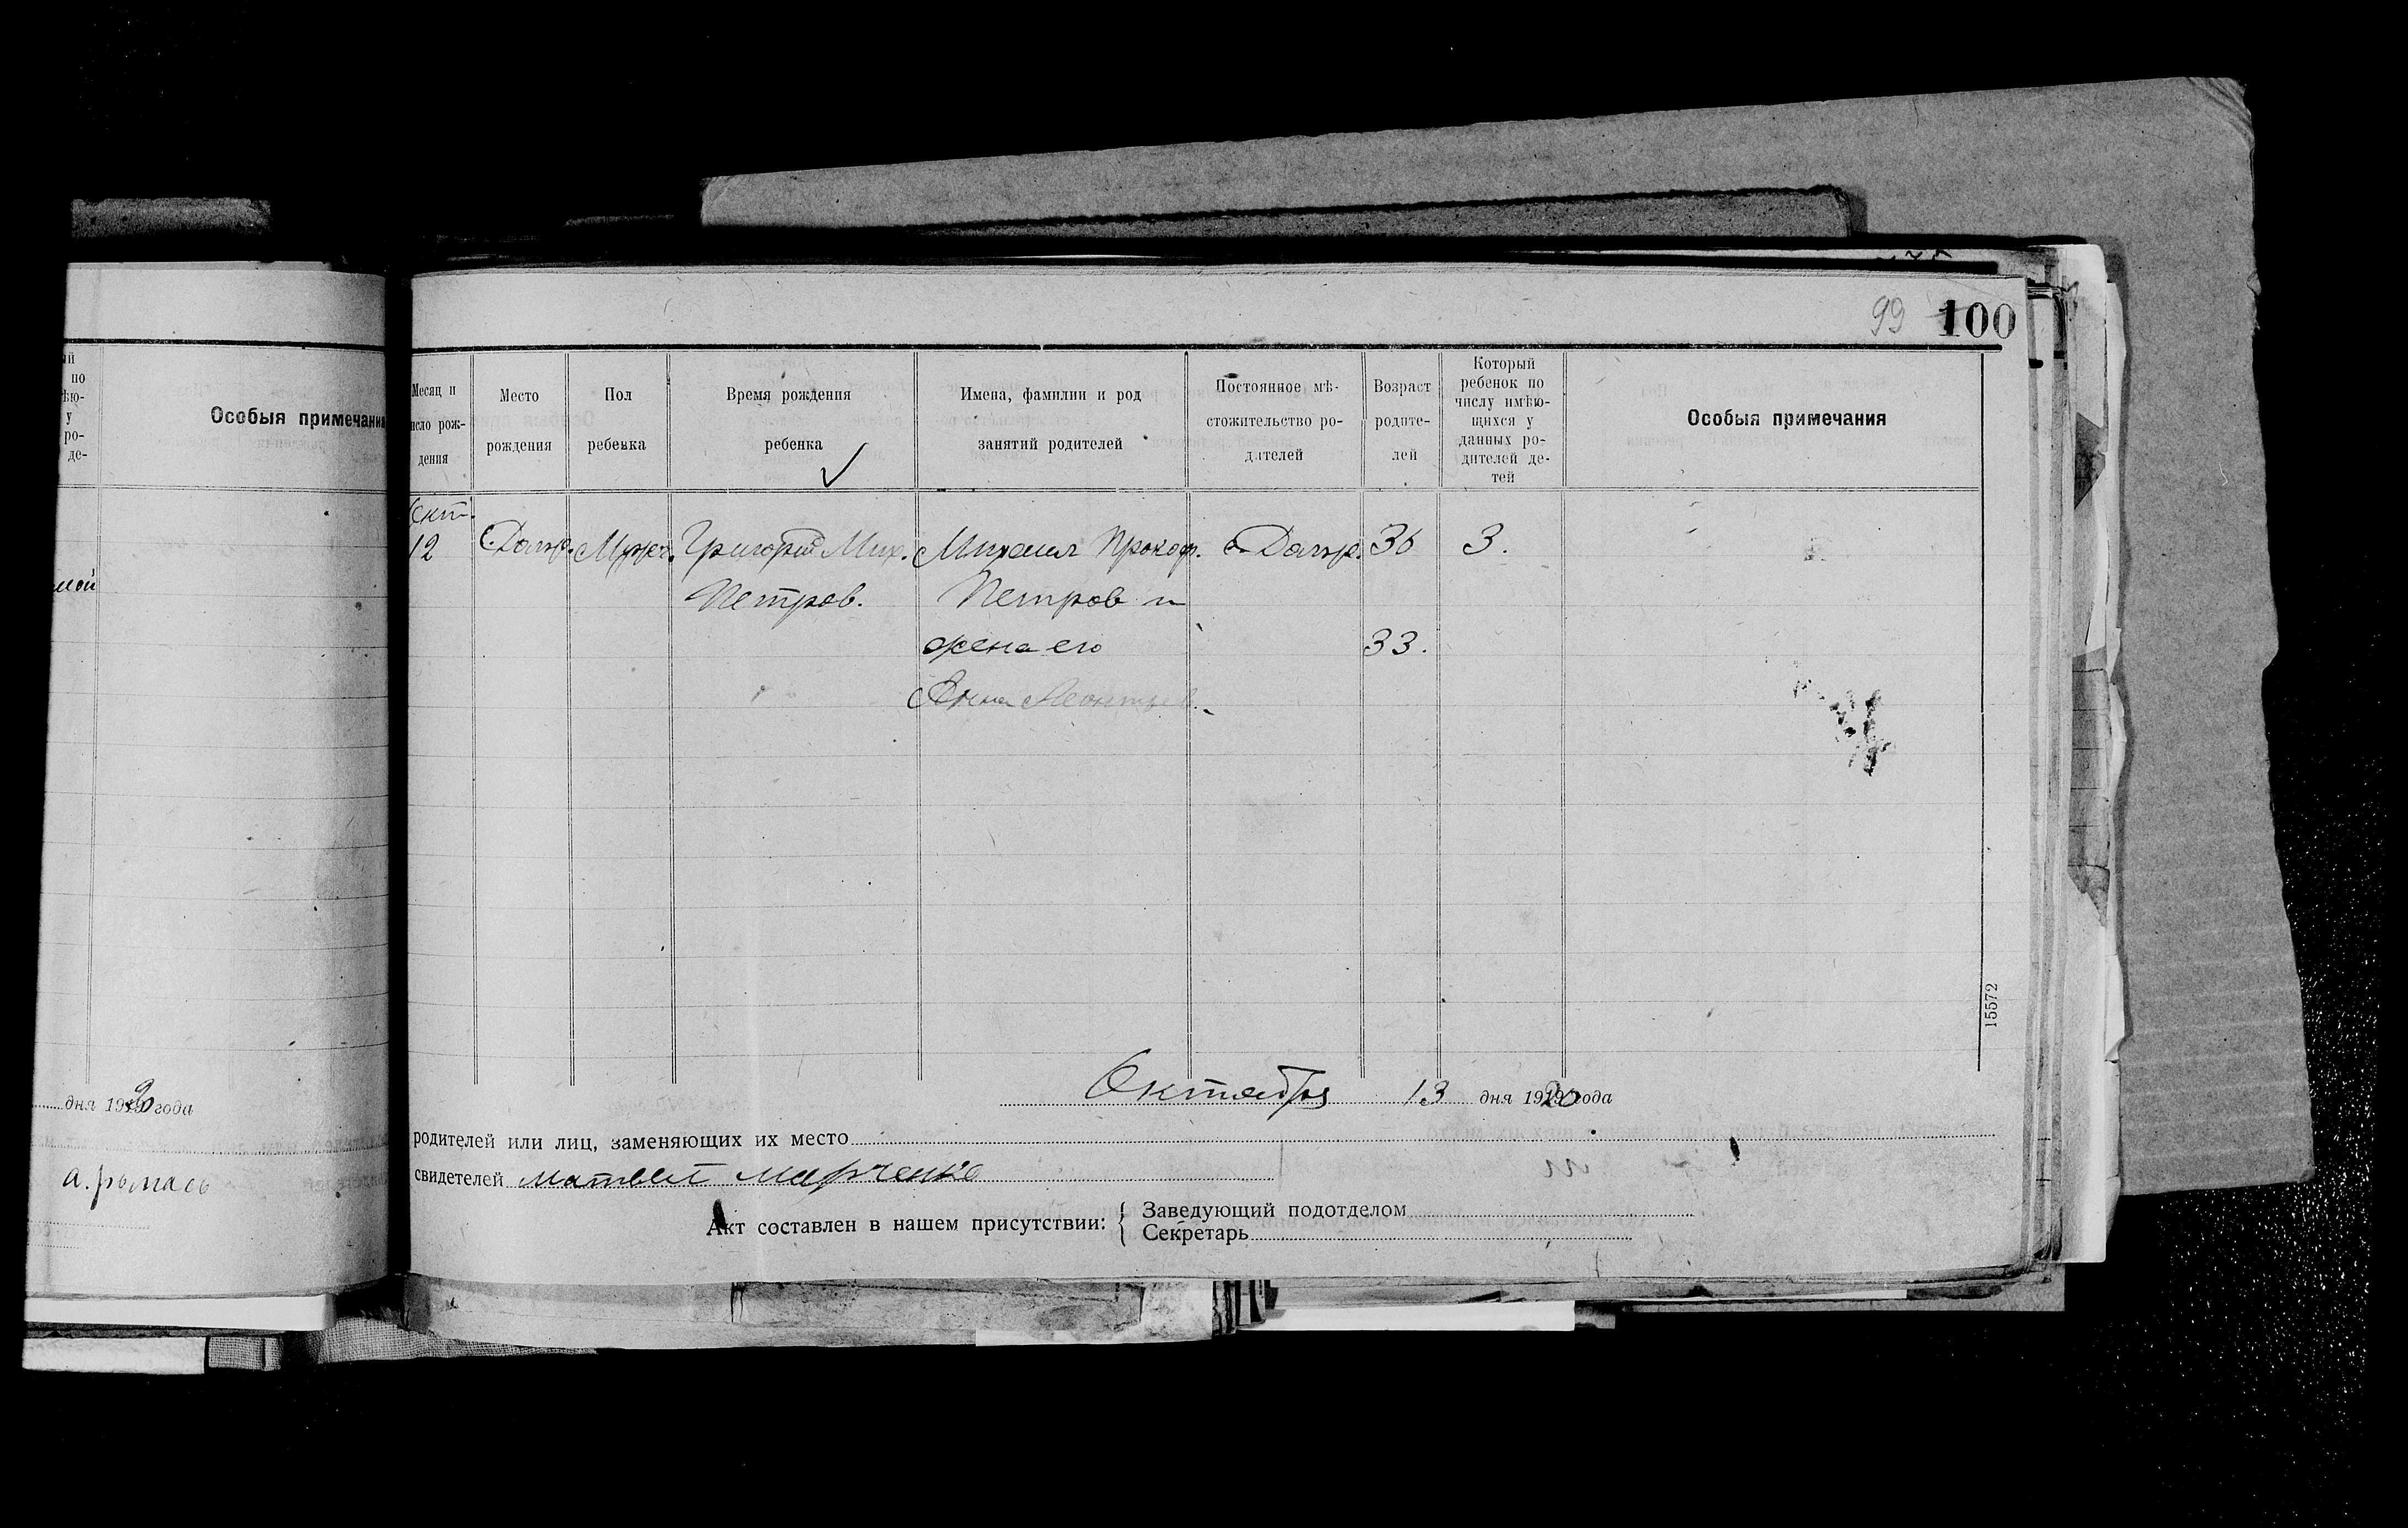 99 100
ый
по
ѣю-
у
ро-
де-
Особыя примечания
мой
дня 1920 года
Месяц и
число рож-
дения
Место
рождения
Пол
ребенка
Время рождения
ребенка
Имена, фамилии и род
занятий родителей
Постоянное мѣ-
стожительство ро-
дителей
Возраст
родите-
лей
Который
ребенок по
числу имѣю-
щихся у
данных ро-
дителей де-
тей
Особыя примечания
Окт.
12
Муж.
Григорий Мих.
Петров.
Михаил Прокоф.
Петров и
жена его
Анна Леонтьев.
36
33.
3.
15572
Октября 13 дня 1920 года
родителей или лиц, заменяющих их место
свидетелей Матвей Марченко
Акт составлен в нашем присутствии:
Заведующий подотделом
Секретарь